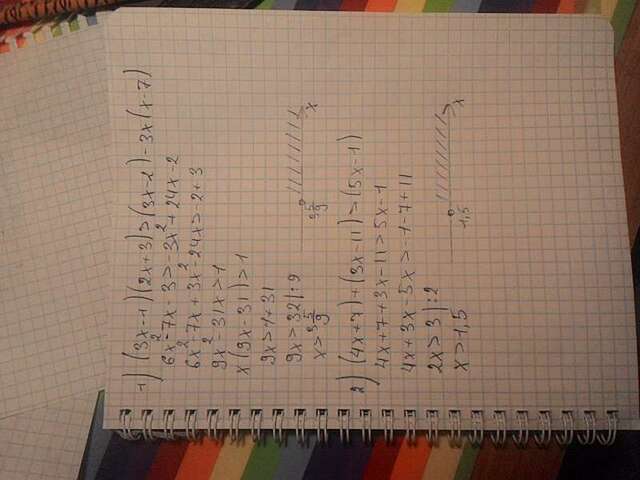 1) (3x-1)(2x+3)>(3x-2)-3x(x-7)
6x²-7x-3>-3x²+24x-2
6x²-7x+3x²-24x>-2+3
9x²-31x>1
x(9x-31)>1
9x>1+31
9x>32|:9
x>3 5/9
3 5/9 x
2) (4x+7)+(3x-11)>(5x-1)
4x+7+3x-11>5x-1
4x+3x-5x>-1-7+11
2x>3|:2
x>1,5
1,5 x